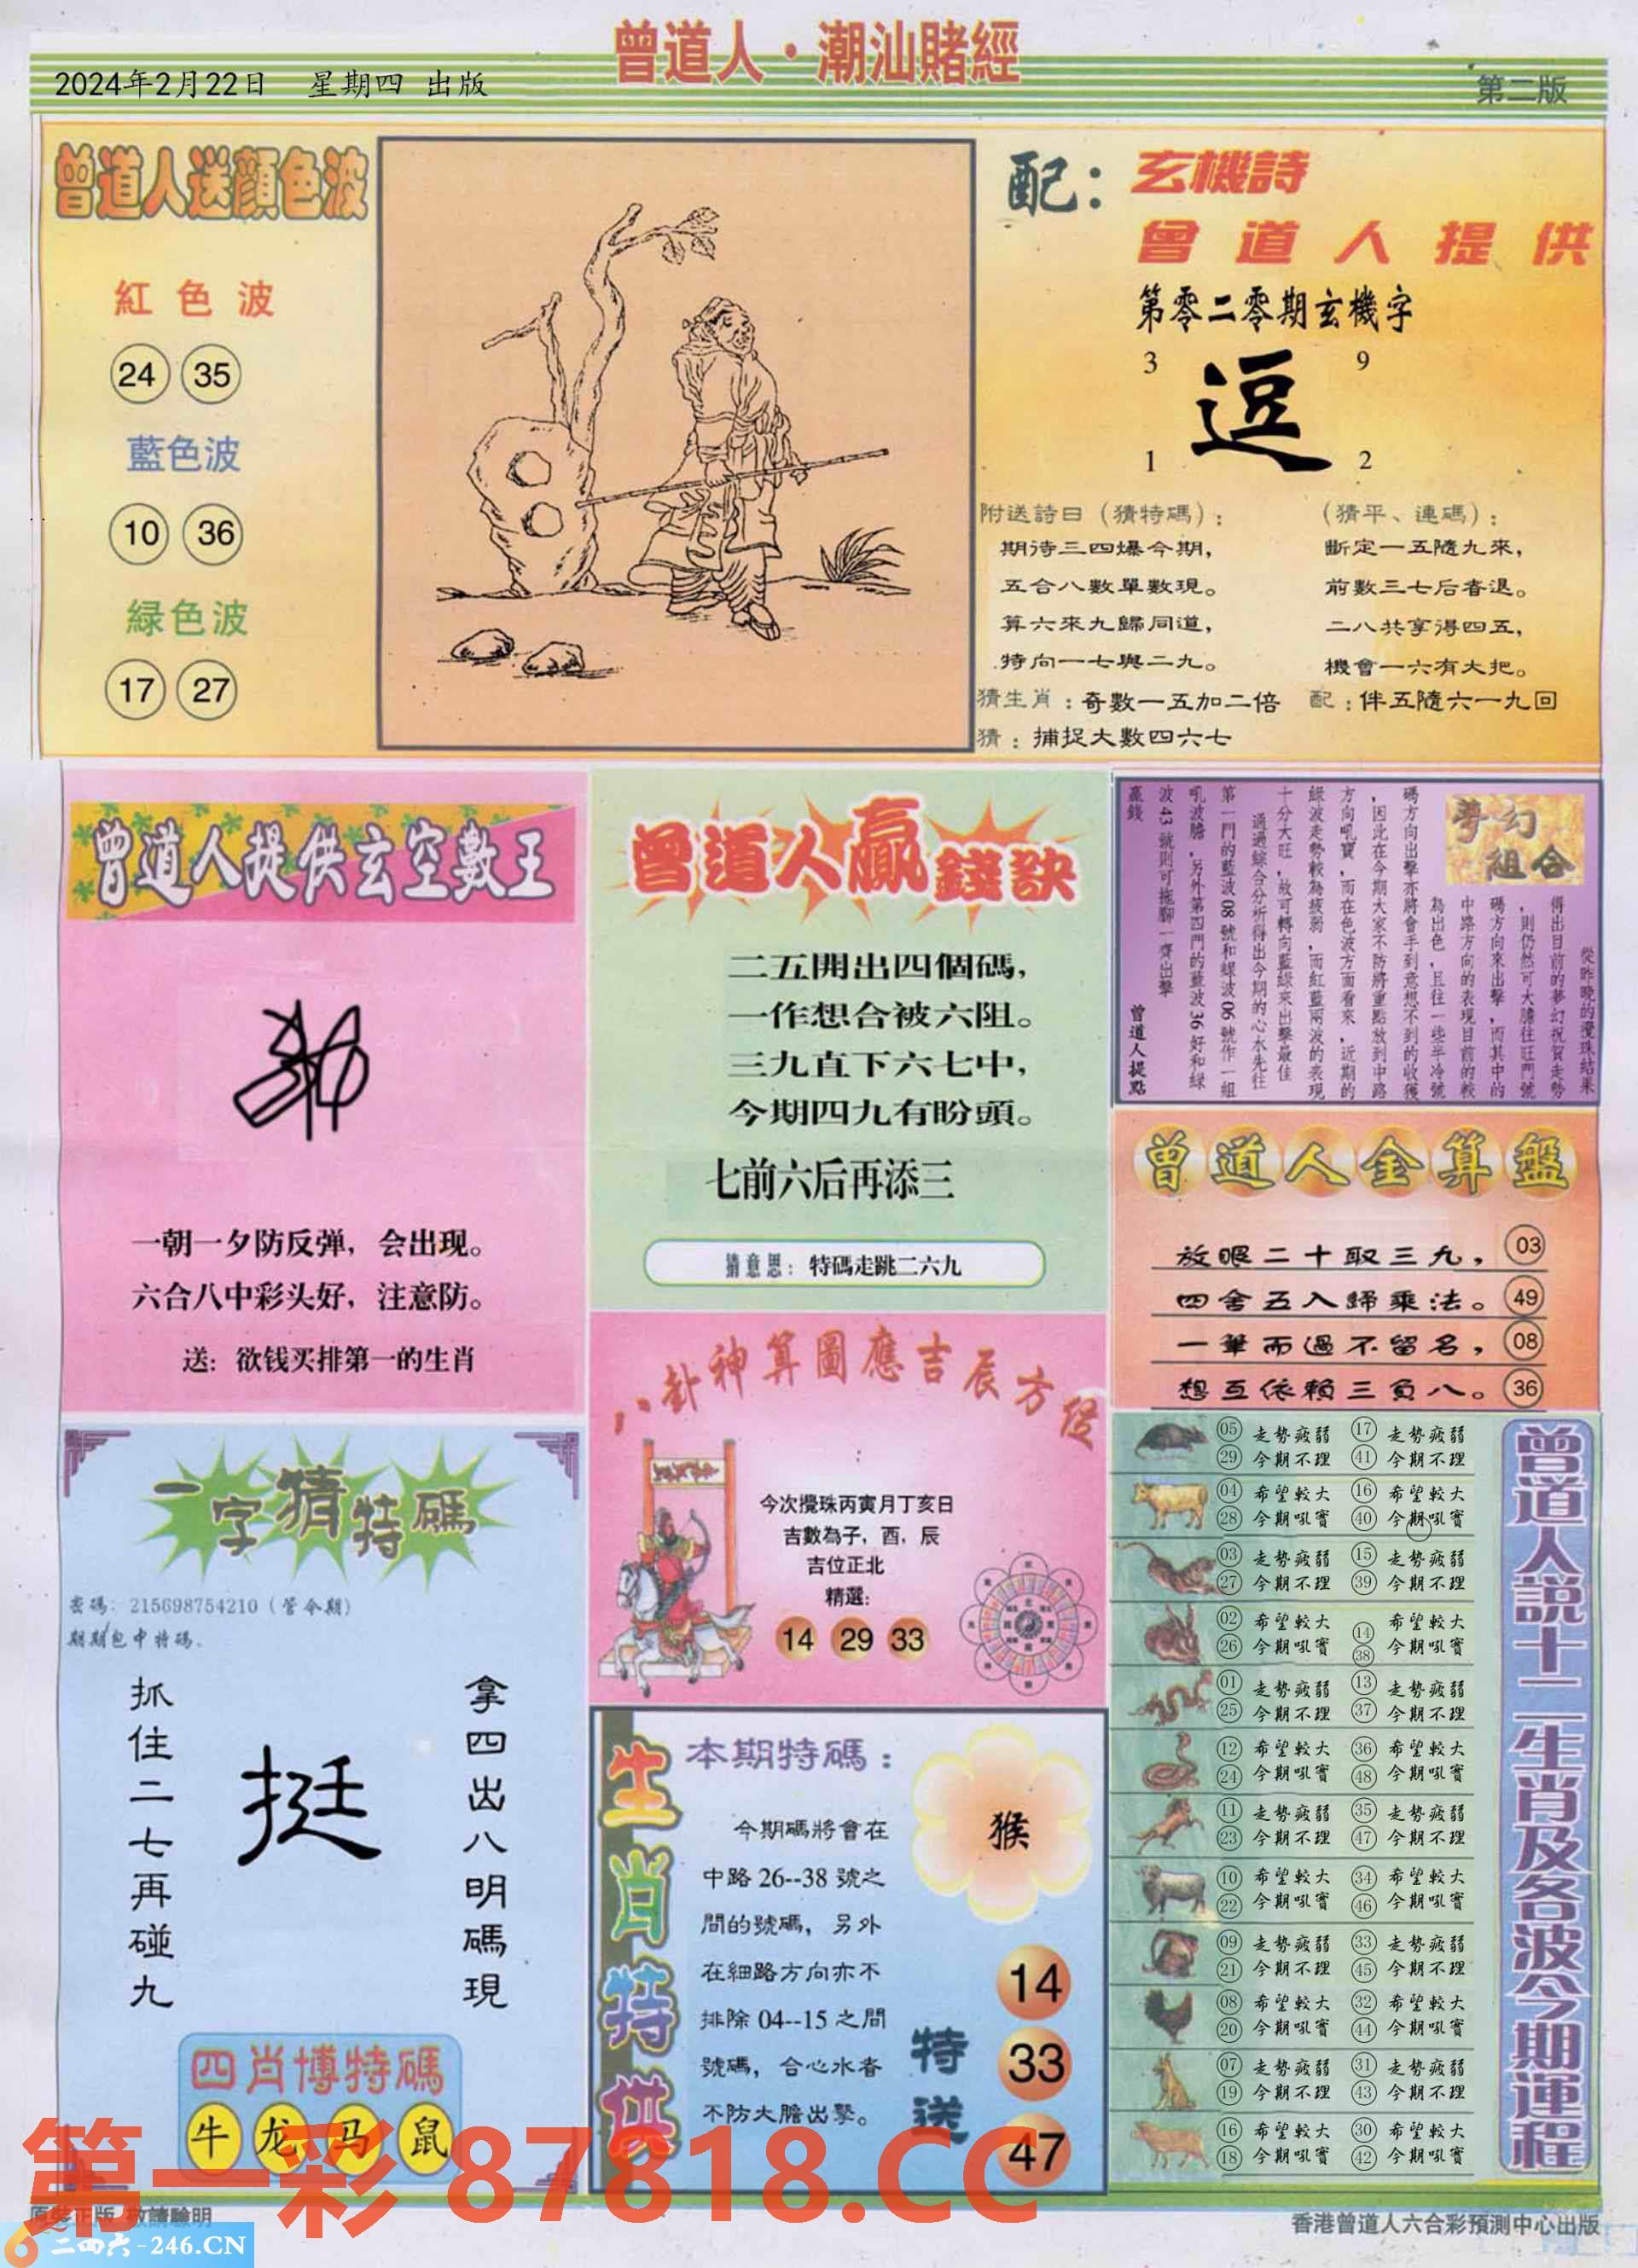 曾道人·潮汕賭經
2024年2月22日 星期四 出版
第二版
曾道人送顔色波
紅色波
24 35
藍色波
10 36
緑色波
17 27
配：
玄機詩
曾道人提供
第零二零期玄機字
3 9
逗
1 2
附送詩日（猜特碼）：
期待三四爆今期，
五合八數單數現。
算六來九歸同道，
特向一七與二九。
（猜平、連碼）：
斷定一五隨九來，
前數三七后春退。
二八共享得四五，
機會一六有大把。
猜生肖：奇數一五加二倍 配：伴五隨六一九回
猜：捕捉大數四六七
曾道人提供玄空數王
一朝一夕防反弹，会出现。
六合八中彩头好，注意防。
送：欲钱买排第一的生肖
曾道人贏錢訣
二五開出四個碼，
一作想合被六阻。
三九直下六七中，
今期四九有盼頭。
七前六后再添三
猜意思：特碼走跳二六九
夢幻
組合
從昨晚的攪珠結果
得出目前的夢幻祝賀走勢
，則仍然可大膽往旺門號
碼方向來出擊，而其中的
中路方向的表現目前的較
為出色，且往一些半冷號
碼方向出擊亦將會手到意想不到的收獲
，因此在今期大家不防將重點放到中路
方向吼寶，而在色波方面看來，近期的
綠波走勢較為疲弱，而紅藍兩波的表現
十分大旺，故可轉向藍綠來出擊最佳
通過綜合分析得出今期的心水先往
第一門的藍波08號和綠波06號作一組
吼波膽，另外第四門的藍波36好和綠
波43號則可拖脚一齊出擊
贏錢
曾道人提點
曾道人金算盤
放眼二十取三九， 03
四舍五入歸乘法。 49
一筆而過不留名， 08
想互依賴三負八。 36
八卦神算圖應吉辰方位
今次攪珠丙寅月丁亥日
吉數為子，酉，辰
吉位正北
精選：
14 29 33
一字猜特碼
密碼：215698754210（管今期）
期期包中特碼.
拿四出八明碼現
挺
抓住二七再碰九
四肖博特碼
牛 龙 马 鼠
生肖特供
本期特碼：
今期碼將會在
中路26--38號之
間的號碼，另外
在細路方向亦不
排除04--15之間
號碼，合心水者
不防大膽出擊。
猴
特送
14
33
47
曾道人說十二生肖及各波今期運程
05 走勢疲弱 17 走勢疲弱
29 今期不理 41 今期不理
04 希望較大 16 希望較大
28 今期吼寶 40 今期吼寶
03 走勢疲弱 15 走勢疲弱
27 今期不理 39 今期不理
02 希望較大 14 希望較大
26 今期吼寶 38 今期吼寶
01 走勢疲弱 13 走勢疲弱
25 今期不理 37 今期不理
12 希望較大 36 希望較大
24 今期吼寶 48 今期吼寶
11 走勢疲弱 35 走勢疲弱
23 今期不理 47 今期不理
10 希望較大 34 希望較大
22 今期吼寶 46 今期吼寶
09 走勢疲弱 33 走勢疲弱
21 今期不理 45 今期不理
08 希望較大 32 希望較大
20 今期吼寶 44 今期吼寶
07 走勢疲弱 31 走勢疲弱
19 今期不理 43 今期不理
16 希望較大 30 希望較大
18 今期吼寶 42 今期吼寶
第一彩 87818.CC
原裝正版 敬請驗明
二四六-246.CN
香港曾道人六合彩預測中心出版